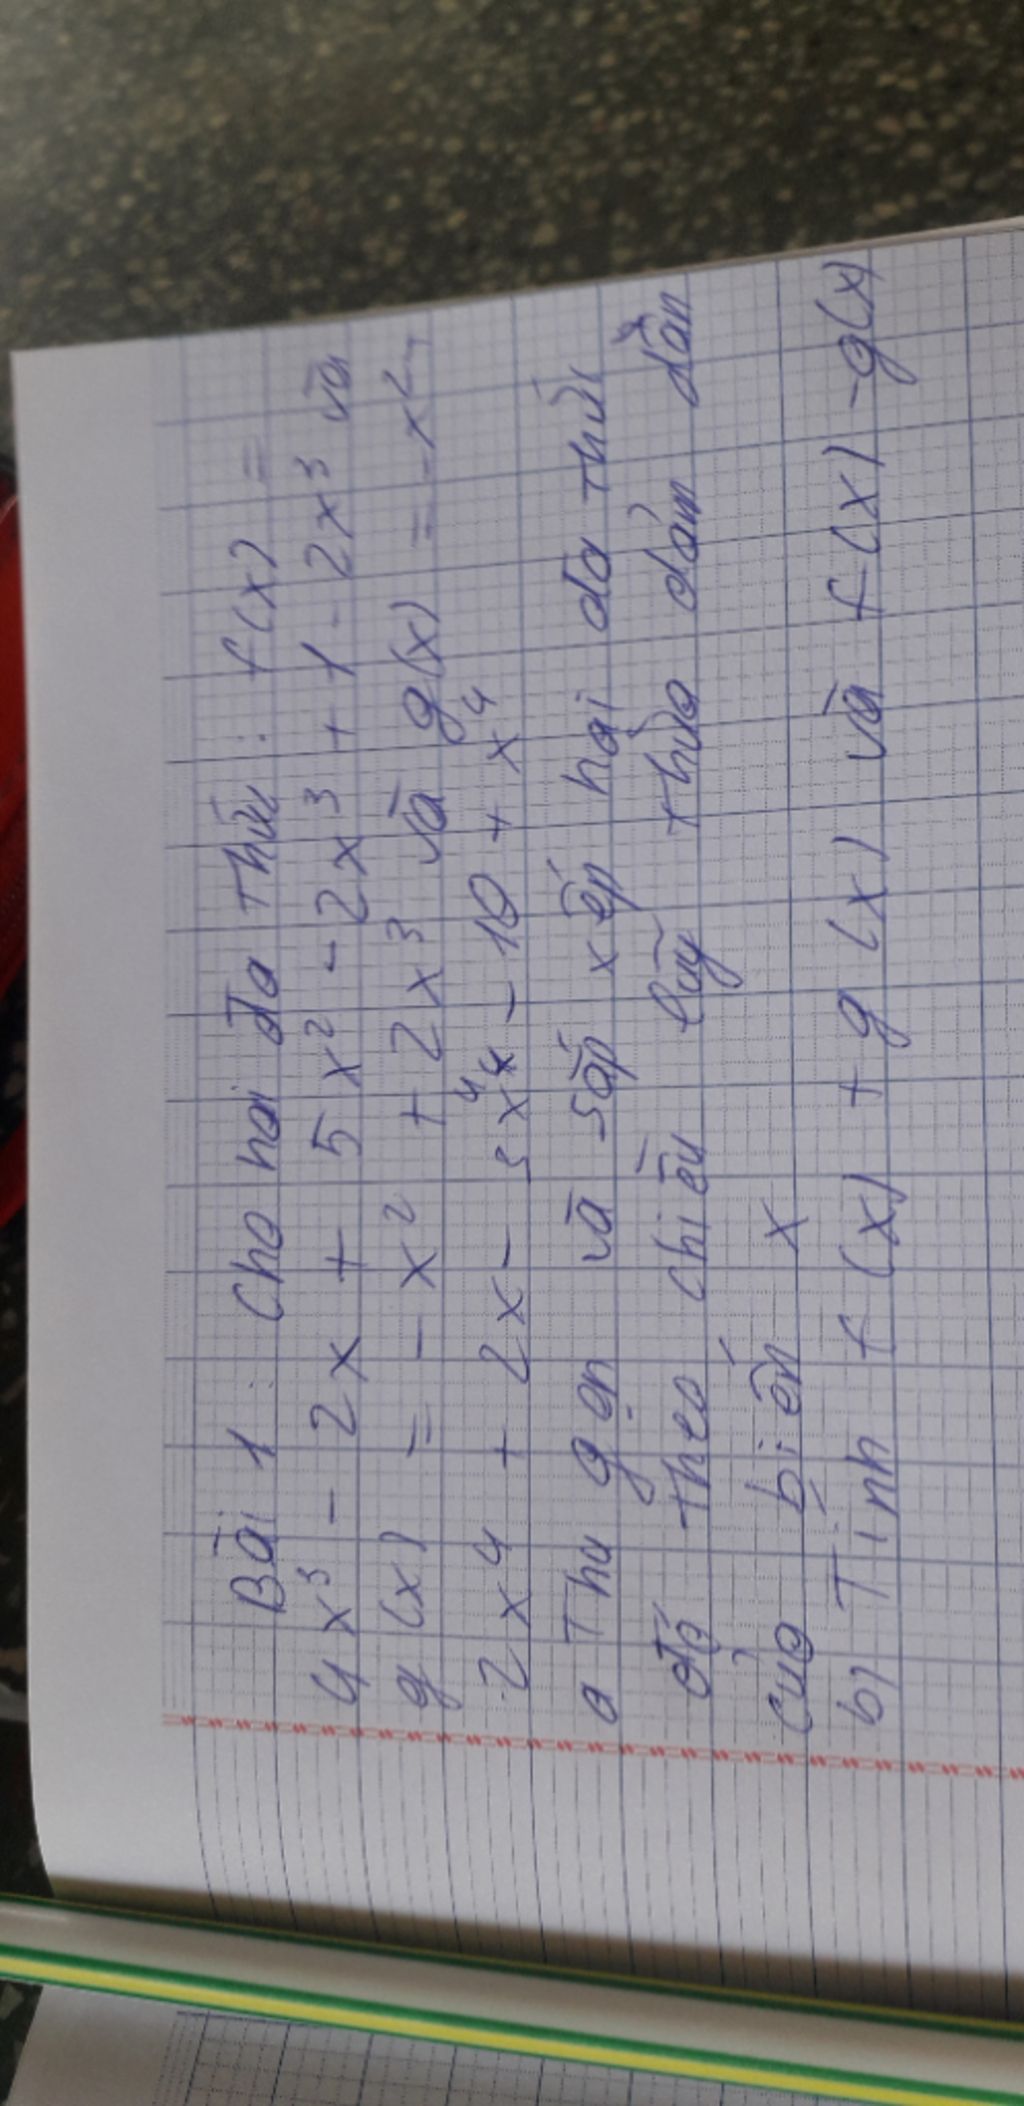 Bài 1: Cho hai đa thức: f(x) =
4x³ - 2x + 5x² - 2x³ + 1 - 2x³ và
g(x) = - x² + 2x³ và g(x) = - x²
2x⁴ + 2x - 3x⁴ - 10 + x⁴
a Thu gọn và sắp xếp hai đa thức
đó theo chiều luỹ thừa đảm dần
của biến x
b) Tinh f(x) + g(x) và f(x) - g(x)